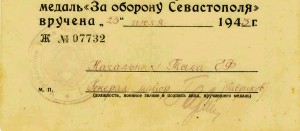 медаль «За оборону Севастополя»
вручена „23" июля 1943 г.
Ж № 07732
Начальник Тыла ЕФ
М. П. Генерал майор
(должность, военное звание и подпись лица, вручившего медаль)